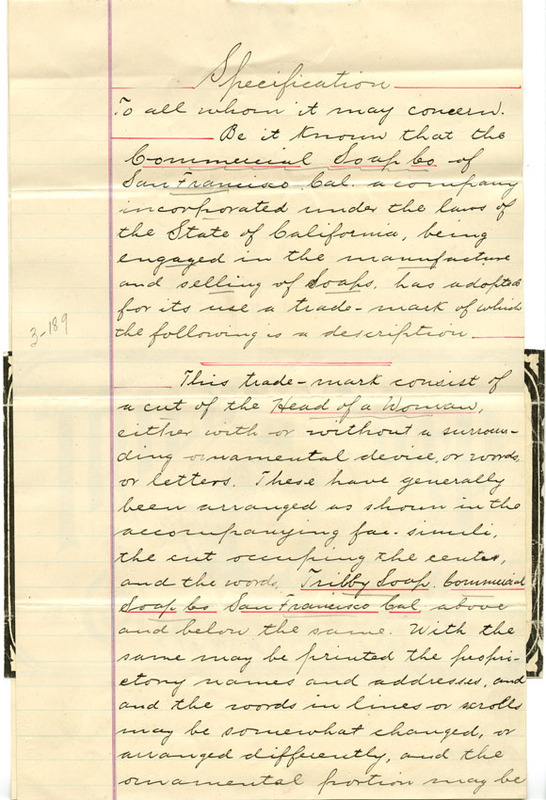 Specification
To all whom it may concern.
Be it Known that the
Commercial Soap Co of
San Francisco, Cal. a company
incorporated under the laws of
the State of California, being
engaged in the manufacture
and selling of Soaps, has adopted
for its use a trade-mark of which
the following is a description
3-189
This trade-mark consist of
a cut of the Head of a Woman,
either with or without a surroun-
ding ornamental device, or words,
or letters. These have generally
been arranged as shown in the
accompanying fac-simili,
the cut occuping the center,
and the words, Trilby Soap, Commercial
Soap Co San Francisco Cal above
and below the same. With the
same may be printed the propri-
etory names and addresses, and
and the words in lines or scrolls
may be somewhat changed, or
arranged differently, and the
ornamental portion may be